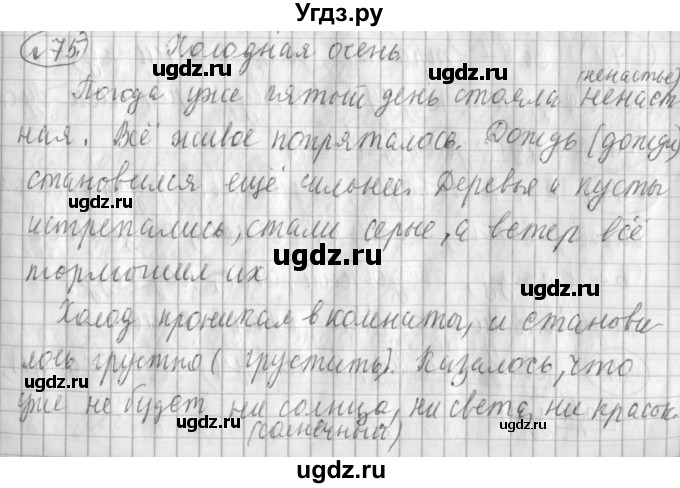 УгДЗ.ру
75. Холодная осень.
ugdz.ru ugdz.ru
(ненастье)
Погода уже пятый день стояла ненаст
ная. Всё живое попряталось. Дождь (дожди)
ugdz.ru ugdz.ru
становился ещё сильнее. Деревья и кусты
ugdz.ru
истрепались, стали серые, а ветер всё
ugdz.ru
тормошил их
ugdz.ru
Холод проникал в комнаты, и станови-
лось грустно (грустить). Казалось, что
ugdz.ru ugdz.ru
уже не будет ни солнца, ни света, ни красок.
(солнечный)
ugdz.ru
ugdz.ru